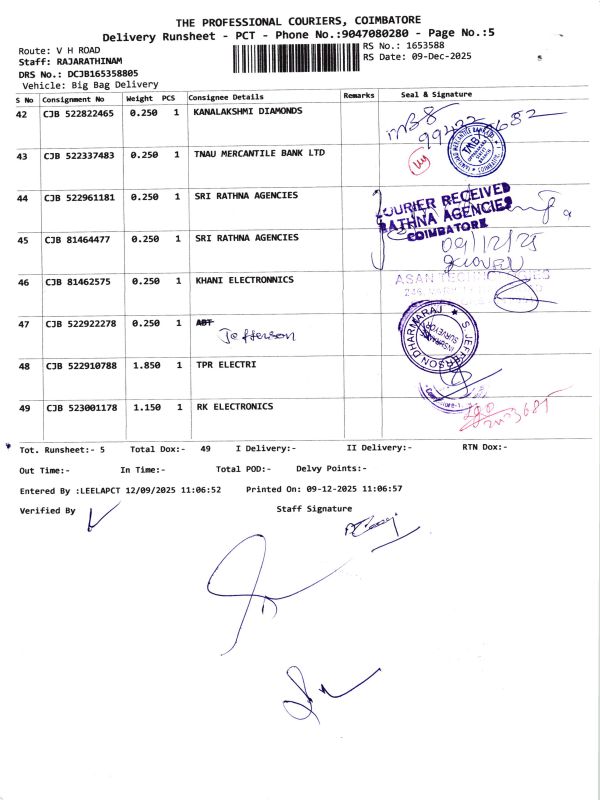 THE PROFESSIONAL COURIERS, COIMBATORE
Delivery Runsheet - PCT - Phone No.:9047080280 - Page No.:5
Route: V H ROAD
RS No.: 1653588
Staff: RAJARATHINAM
RS Date: 09-Dec-2025
DRS No.: DCJB165358805
Vehicle: Big Bag Delivery
S No Consignment No Weight PCS Consignee Details Remarks Seal & Signature
42 CJB 522822465 0.250 1 KANALAKSHMI DIAMONDS
43 CJB 522337483 0.250 1 TNAU MERCANTILE BANK LTD
44 CJB 522961181 0.250 1 SRI RATHNA AGENCIES
COURIER RECEIVED
RATHNA AGENCIES
COIMBATORE
45 CJB 81464477 0.250 1 SRI RATHNA AGENCIES
09/12/25
46 CJB 81462575 0.250 1 KHANI ELECTRONNICS
47 CJB 522922278 0.250 1 ABT
Jefferson
S. JEFFERSON DHARMARAJ
INSURANCE
SURVEYOR
48 CJB 522910788 1.850 1 TPR ELECTRI
49 CJB 523001178 1.150 1 RK ELECTRONICS
Tot. Runsheet:- 5 Total Dox:- 49 I Delivery:- II Delivery:- RTN Dox:-
Out Time:- In Time:- Total POD:- Delvy Points:-
Entered By :LEELAPCT 12/09/2025 11:06:52 Printed On: 09-12-2025 11:06:57
Verified By Staff Signature